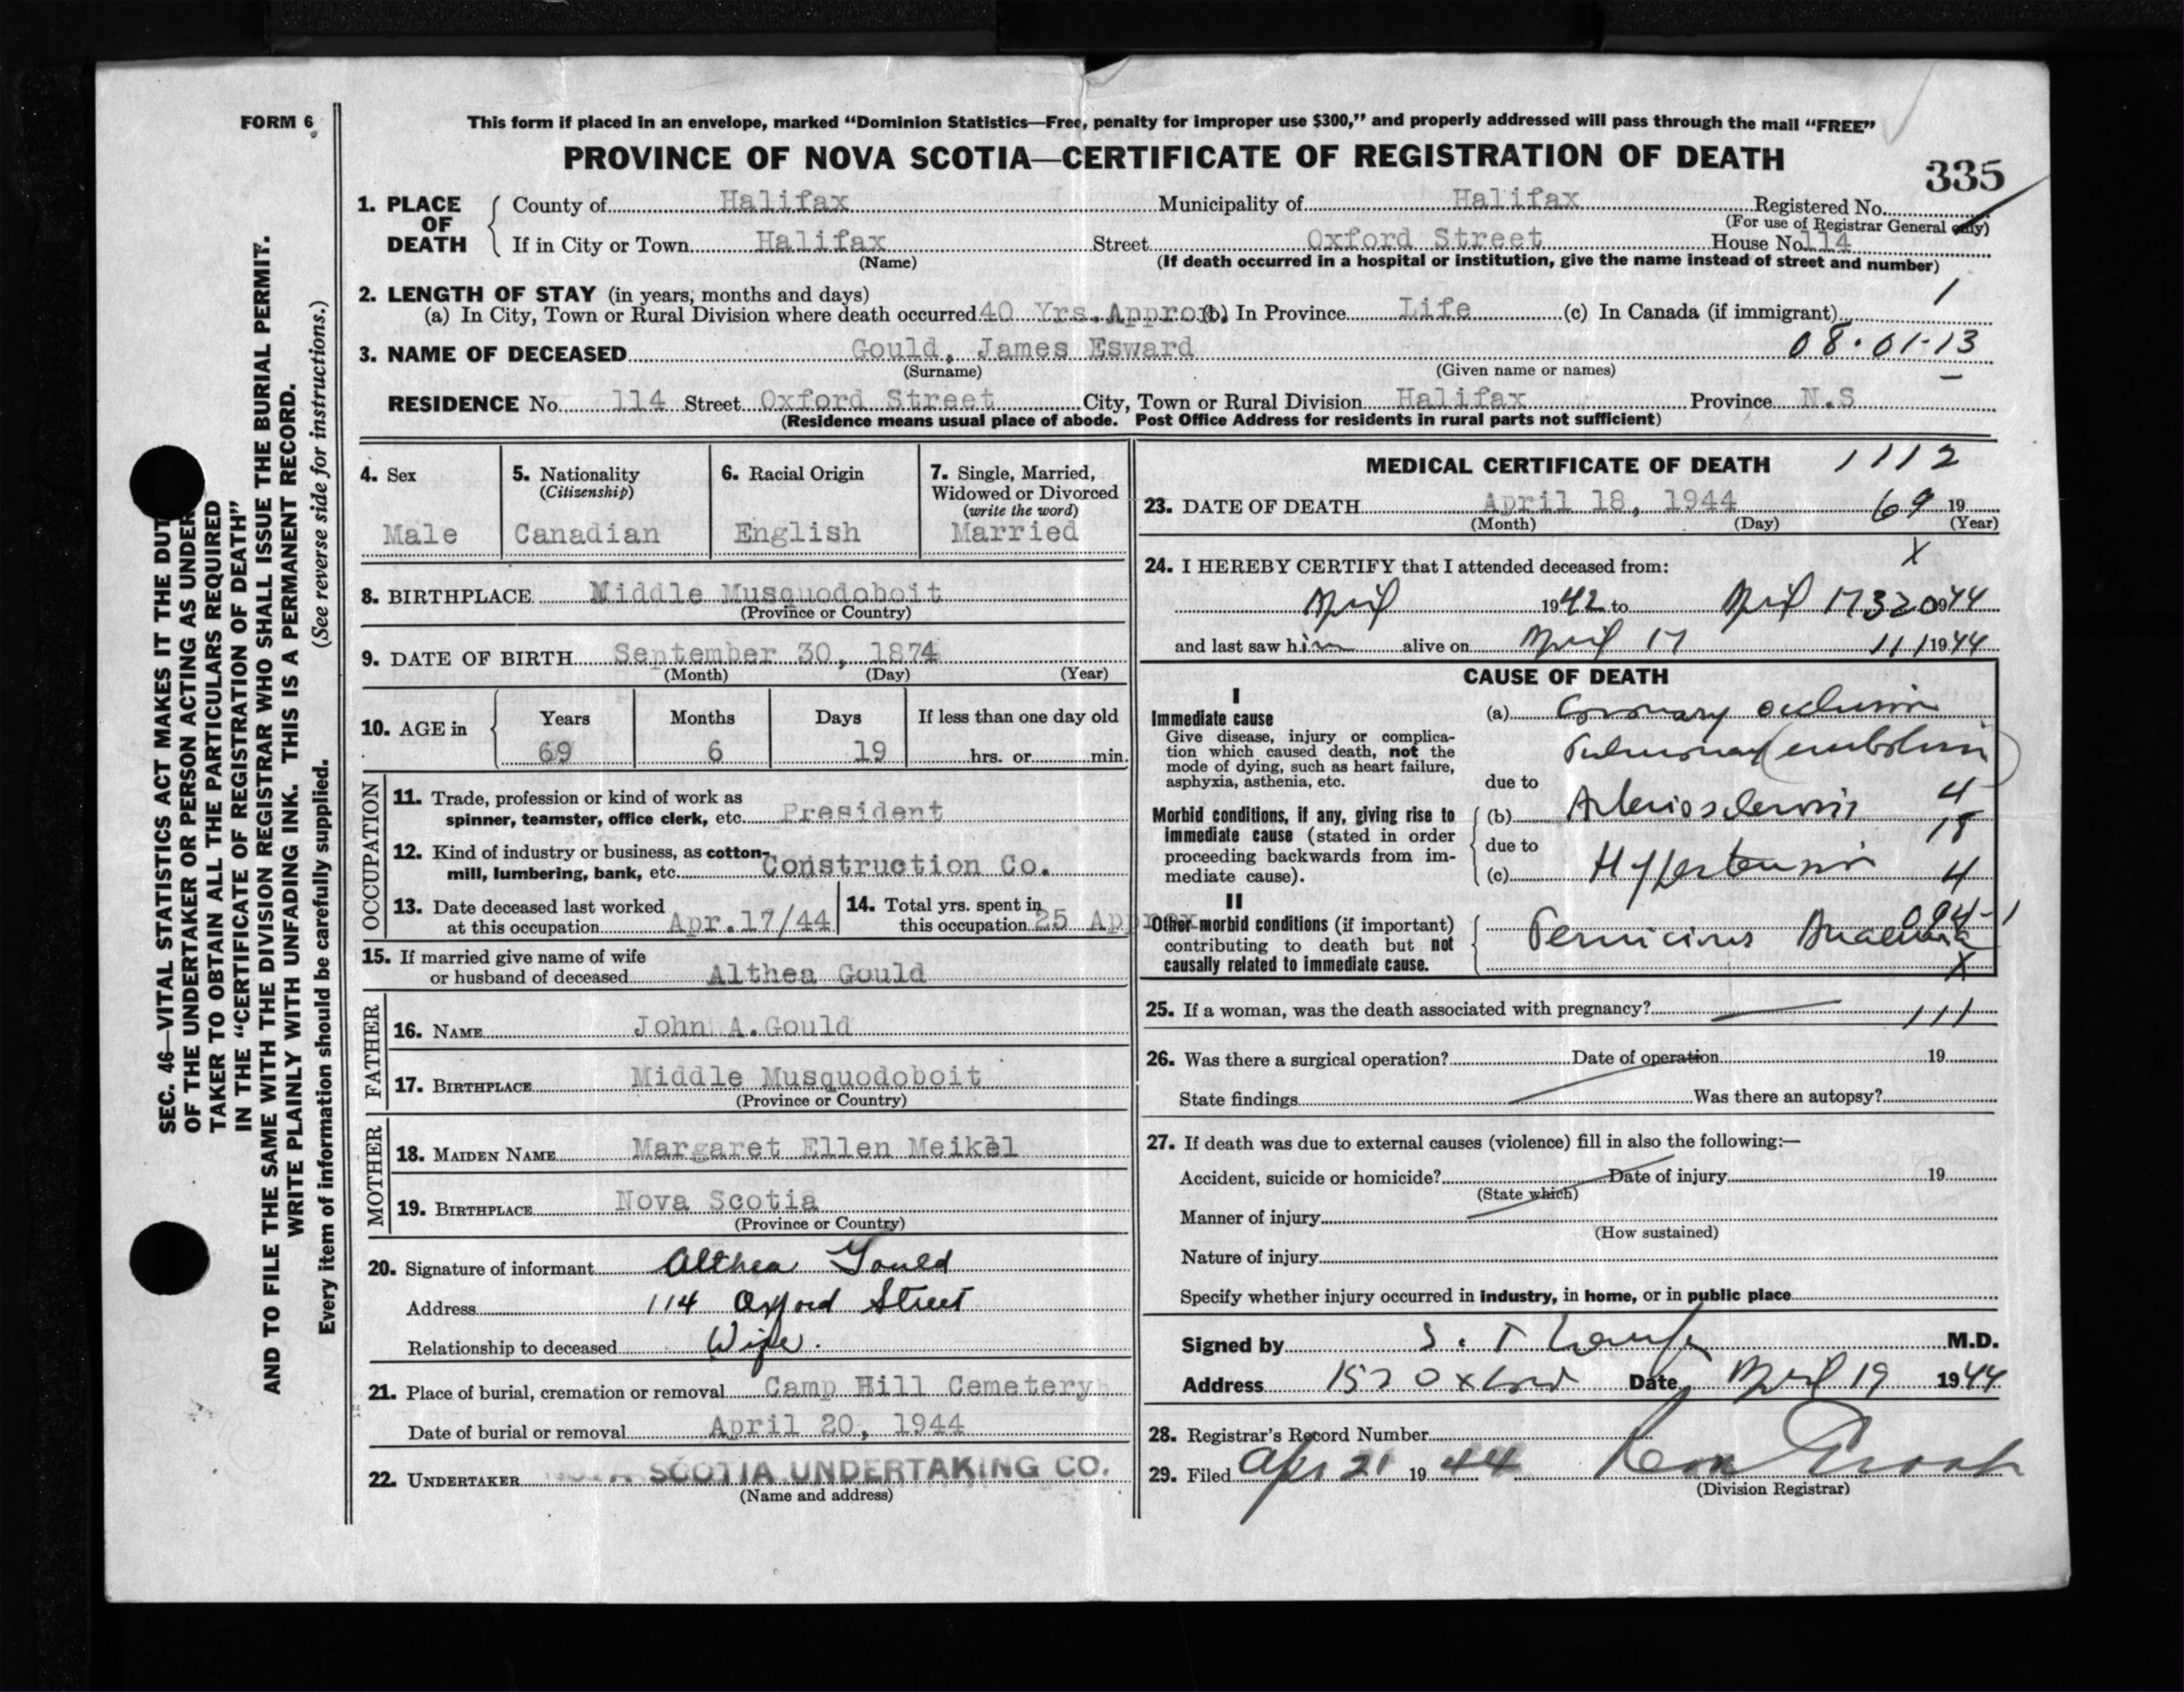 FORM 6
This form if placed in an envelope, marked "Dominion Statistics—Free, penalty for improper use $300," and properly addressed will pass through the mail "FREE"
PROVINCE OF NOVA SCOTIA—CERTIFICATE OF REGISTRATION OF DEATH
335
1. PLACE OF DEATH
County of Halifax Municipality of Halifax Registered No.
(For use of Registrar General only)
If in City or Town Halifax Street Oxford Street House No. 114
(Name) (If death occurred in a hospital or institution, give the name instead of street and number)
2. LENGTH OF STAY (in years, months and days) 1
(a) In City, Town or Rural Division where death occurred 40 Yrs. Approx. (b) In Province Life (c) In Canada (if immigrant)
3. NAME OF DECEASED Gould, James Esward 08·01-13
(Surname) (Given name or names)
RESIDENCE No. 114 Street Oxford Street City, Town or Rural Division Halifax Province N.S
(Residence means usual place of abode. Post Office Address for residents in rural parts not sufficient)
4. Sex
Male
5. Nationality
(Citizenship)
Canadian
6. Racial Origin
English
7. Single, Married,
Widowed or Divorced
(write the word)
Married
8. BIRTHPLACE Middle Musquodoboit
(Province or Country)
9. DATE OF BIRTH September 30, 1874
(Month) (Day) (Year)
10. AGE in
Years Months Days If less than one day old
69 6 19 hrs. or min.
OCCUPATION
11. Trade, profession or kind of work as
spinner, teamster, office clerk, etc. President
12. Kind of industry or business, as cotton-
mill, lumbering, bank, etc. Construction Co.
13. Date deceased last worked
at this occupation Apr.17/44
14. Total yrs. spent in
this occupation 25 Approx
15. If married give name of wife
or husband of deceased Althea Gould
FATHER
16. NAME John A.Gould
17. BIRTHPLACE Middle Musquodoboit
(Province or Country)
MOTHER
18. MAIDEN NAME Margaret Ellen Meikel
19. BIRTHPLACE Nova Scotia
(Province or Country)
20. Signature of informant Althea Gould
Address 114 Oxford Street
Relationship to deceased Wife.
21. Place of burial, cremation or removal Camp Hill Cemetery
Date of burial or removal April 20, 1944
22. UNDERTAKER NOVA SCOTIA UNDERTAKING CO.
(Name and address)
MEDICAL CERTIFICATE OF DEATH 1112
23. DATE OF DEATH April 18, 1944 69 19
(Month) (Day) (Year)
24. I HEREBY CERTIFY that I attended deceased from: X
April 1942 to April 17 320 1944
and last saw him alive on April 17 111 1944
CAUSE OF DEATH
I
Immediate cause
Give disease, injury or complica-
tion which caused death, not the
mode of dying, such as heart failure,
asphyxia, asthenia, etc.
(a) Coronary occlusion
Pulmonary embolism
due to
Morbid conditions, if any, giving rise to
immediate cause (stated in order
proceeding backwards from im-
mediate cause).
(b) Arteriosclerosis 4
due to 18
(c) Hypertension 4
II
Other morbid conditions (if important)
contributing to death but not
causally related to immediate cause.
094-1
Pernicious Anaemia
X
25. If a woman, was the death associated with pregnancy? 111
26. Was there a surgical operation? Date of operation 19
State findings Was there an autopsy?
27. If death was due to external causes (violence) fill in also the following:—
Accident, suicide or homicide? Date of injury 19
(State which)
Manner of injury
(How sustained)
Nature of injury
Specify whether injury occurred in industry, in home, or in public place
Signed by S. T M.D.
Address Oxford Date April 19 1944
28. Registrar's Record Number
29. Filed Apr 21 1944
(Division Registrar)
SEC. 46—VITAL STATISTICS ACT MAKES IT THE DUT
OF THE UNDERTAKER OR PERSON ACTING AS UNDER
TAKER TO OBTAIN ALL THE PARTICULARS REQUIRED
IN THE "CERTIFICATE OF REGISTRATION OF DEATH"
AND TO FILE THE SAME WITH THE DIVISION REGISTRAR WHO SHALL ISSUE THE BURIAL PERMIT.
WRITE PLAINLY WITH UNFADING INK. THIS IS A PERMANENT RECORD.
Every item of information should be carefully supplied. (See reverse side for instructions.)